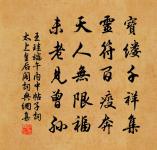 寳縷千祥集
靈符百疹奔
天人無限福
未老見曾孫
王珪端午内中帖子詞
太上皇后閣詞典網集